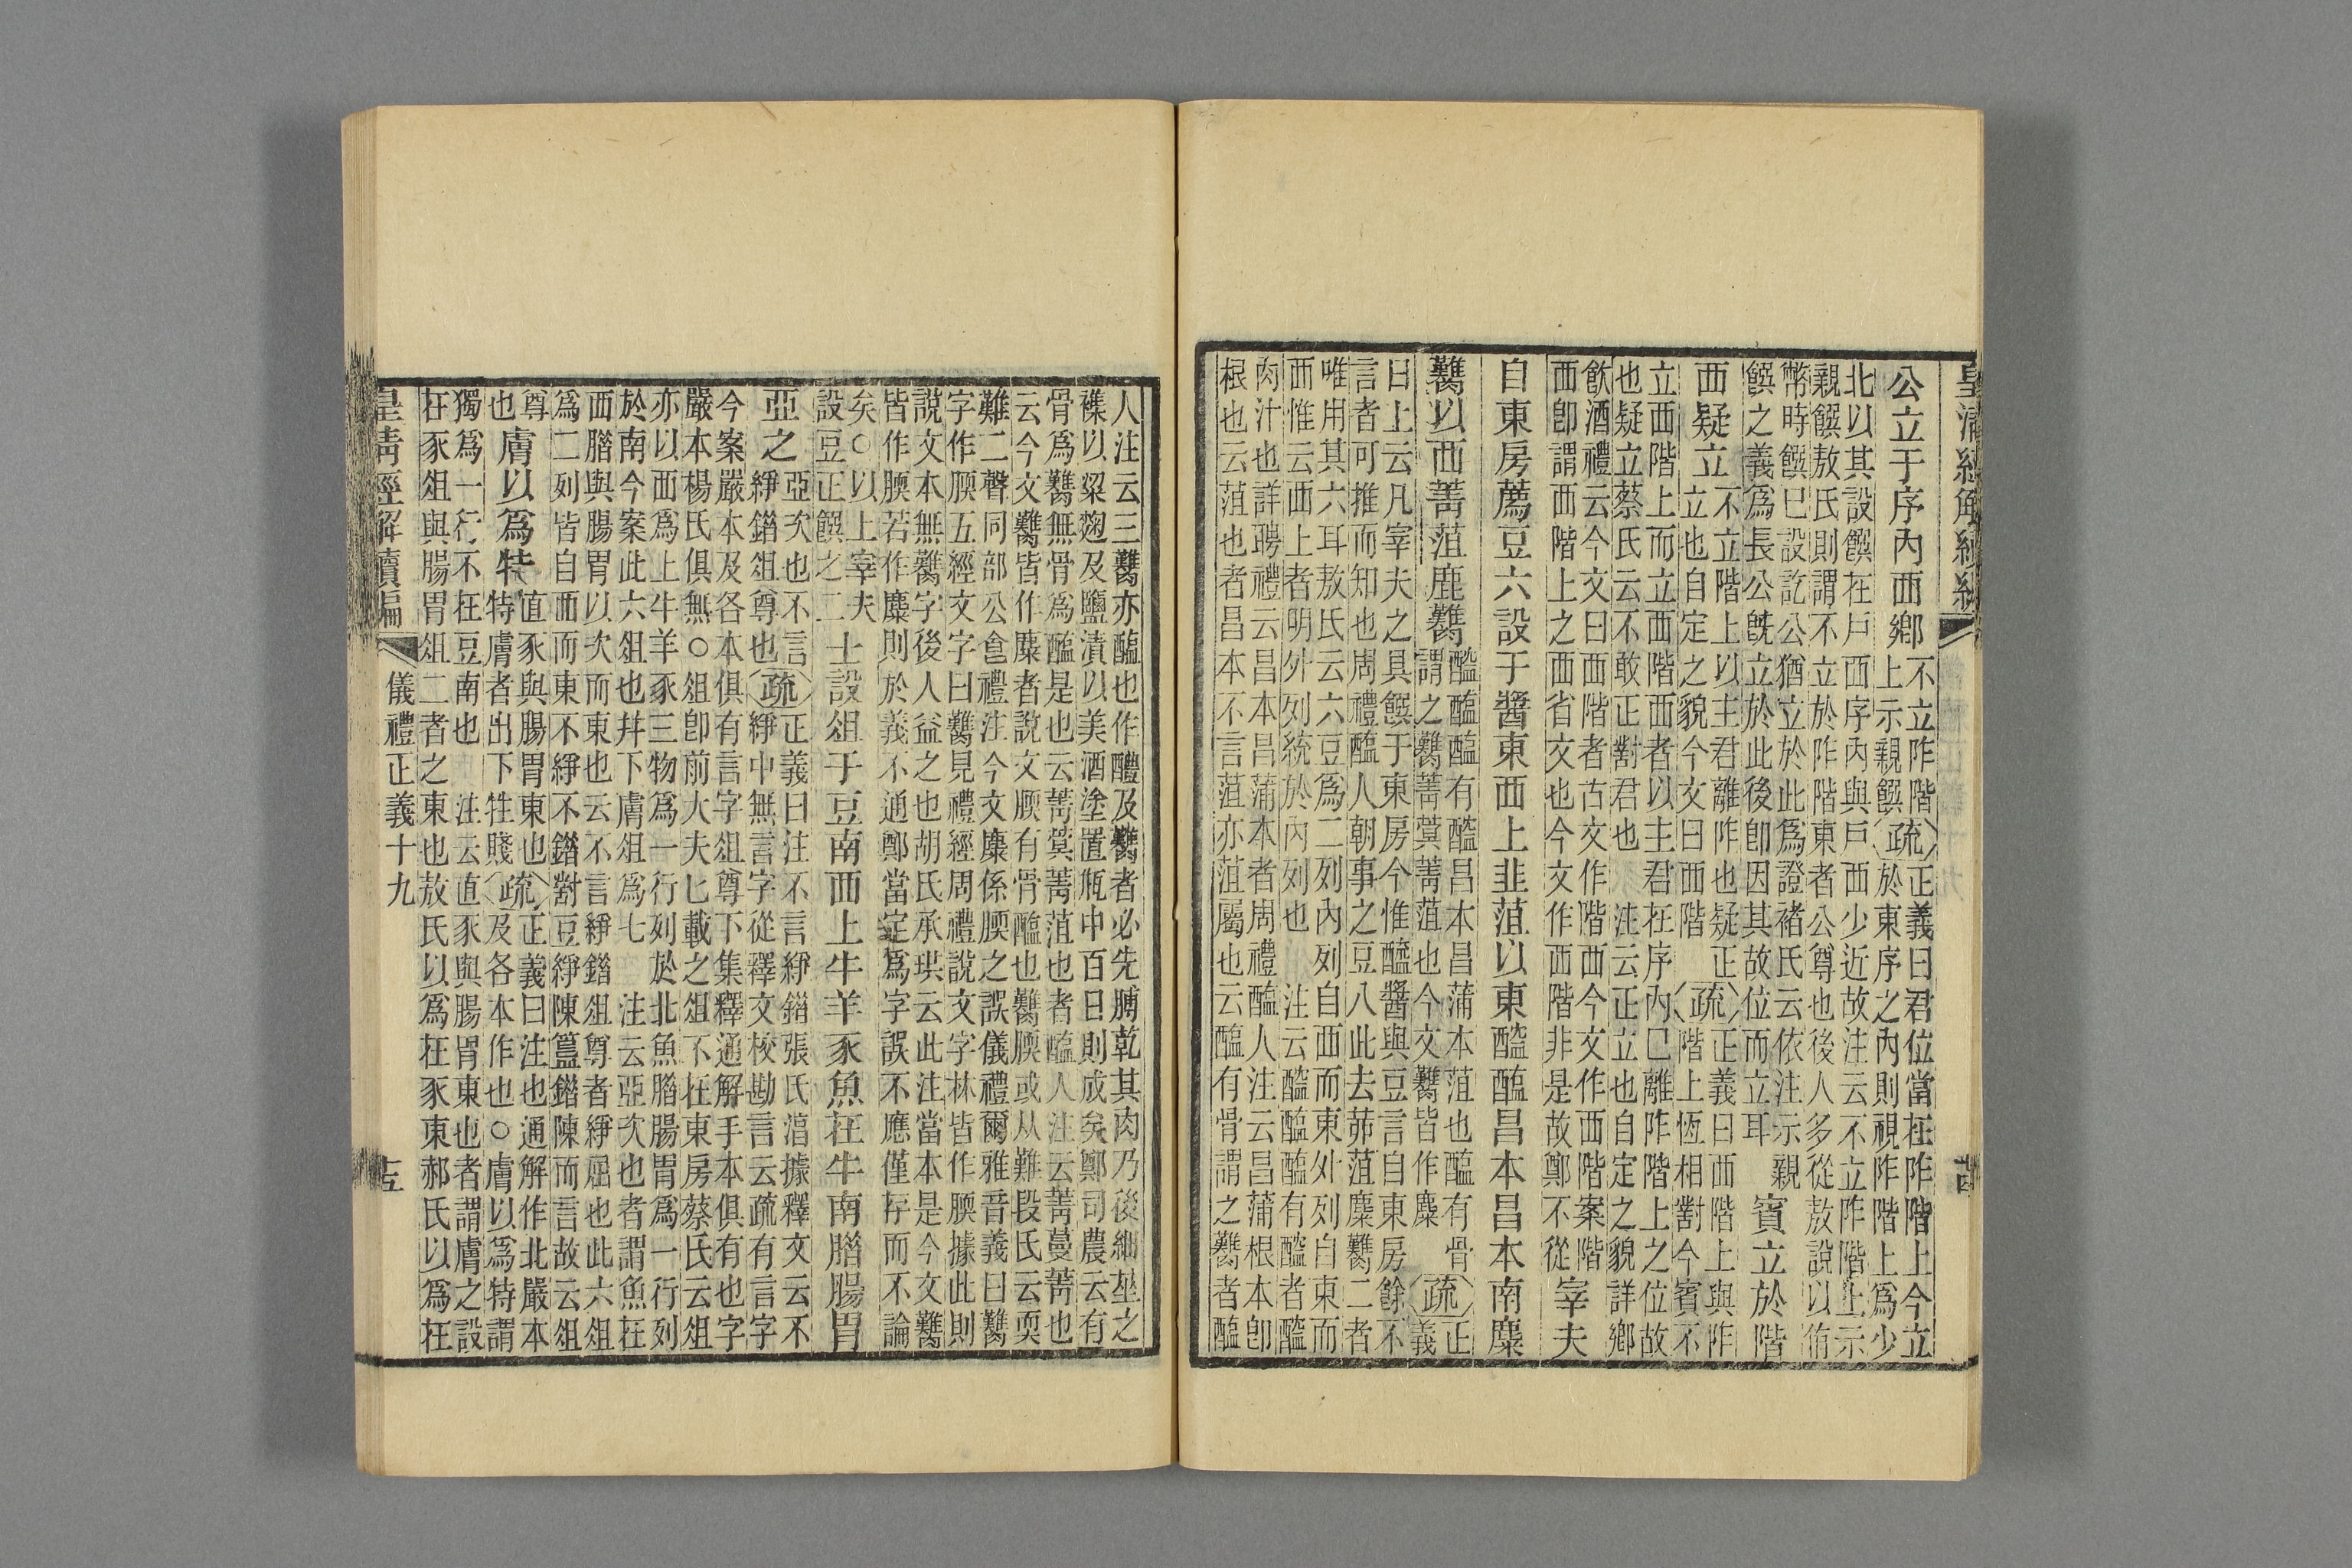 公立于序內西鄉
不立阼階
上示親饌
疏
正義曰君位當在阼階上今立
於東序之內則視阼階上爲少
北以其設饌在戶西序內與戶西少近故注云不立阼階上示
親饌敖氏則謂不立於阼階東者公尊也後人多從敖說以侑
幣時饌已設訖公猶立於此爲證褚氏云依注示親
饌之義爲長公旣立於此後卽因其故位而立耳
賓立於階
西疑立
不立階上以主君離阼也疑正
立也自定之貌今文曰西階
疏
正義曰西階上與阼
階上恆相對今賓不
立西階上而立西階西者以主君在序內已離阼階上之位故
也疑立蔡氏云不敢正對君也 注云正立也自定之貌詳鄉
飮酒禮云今文曰西階者古文作階西今文作西階案階
西卽謂西階上之西省文也今文作西階非是故鄭不從
宰夫
自東房薦豆六設于醬東西上韭菹以東醓醢昌本昌本南麋
臡以西菁菹鹿臡
醓醢醢有醓昌本昌蒲本菹也醢有骨
謂之臡菁蓂菁菹也今文臡皆作麋
疏
正
義
曰上云凡宰夫之具饌于東房今惟醯醬與豆言自東房餘不
言者可推而知也周禮醢人朝事之豆八此去茆菹麋臡二者
唯用其六耳敖氏云六豆爲二列內列自西而東外列自東而
西惟云西上者明外列統於內列也 注云醓醢醢有醓者醓
肉汁也詳聘禮云昌本昌蒲本者周禮醢人注云昌蒲根本卽
根也云菹也者昌本不言菹亦菹屬也云醢有骨謂之臡者醢
人注云三臡亦醢也作醢及臡者必先膊乾其肉乃後細莝之
襍以粱麴及鹽漬以美酒塗置甁中百日則成矣鄭司農云有
骨爲臡無骨爲醢是也云菁蓂菁菹也者醢人注云菁蔓菁也
云今文臡皆作麋者說文腝有骨醢也臡腝或从難段氏云耎
難二聲同部公食禮注今文麋係腝之誤儀禮爾雅音義曰臡
字作腝五經文字曰臡見禮經周禮說文字林皆作腝據此則
說文本無臡字後人益之也胡氏承珙云此注當本是今文臡
皆作腝若作麋則於義不通鄭當定爲字誤不應僅存而不論
矣○以上宰夫
設豆正饌之二
士設俎于豆南西上牛羊豕魚在牛南腊腸胃
亞之
亞次也不言
綪錯俎尊也
疏
正義曰注不言綪錯張氏淳據釋文云不
綪中無言字從釋文校勘言云疏有言字
今案嚴本及各本俱有言字俎尊下集釋通解手本俱有也字
嚴本楊氏俱無○俎卽前大夫匕載之俎不在東房蔡氏云俎
亦以西爲上牛羊豕三物爲一行列於北魚腊腸胃爲一行列
於南今案此六俎也幷下膚俎爲七 注云亞次也者謂魚在
西腊與腸胃以次而東也云不言綪錯俎尊者綪屈也此六俎
爲二列皆自西而東不綪不錯對豆綪陳簋錯陳而言故云俎
尊
也
膚以爲特
直豕與腸胃東也
特膚者出下牲賤
疏
正義曰注也通解作北嚴本
及各本作也○膚以爲特謂
獨爲一行不在豆南也 注云直豕與腸胃東也者謂膚之設
在豕俎與腸胃俎二者之東也敖氏以爲在豕東郝氏以爲在
皇淸經解續編
儀禮正義十九